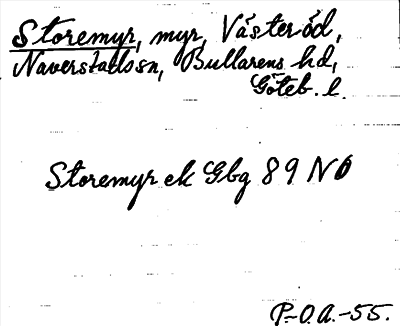 Storemyr, myr, Västeröd,
Naverstadssn, Bullarens hd,
Göteb. l.
Storemyr ek Gbg 89 NO
P.-O.A.-55.